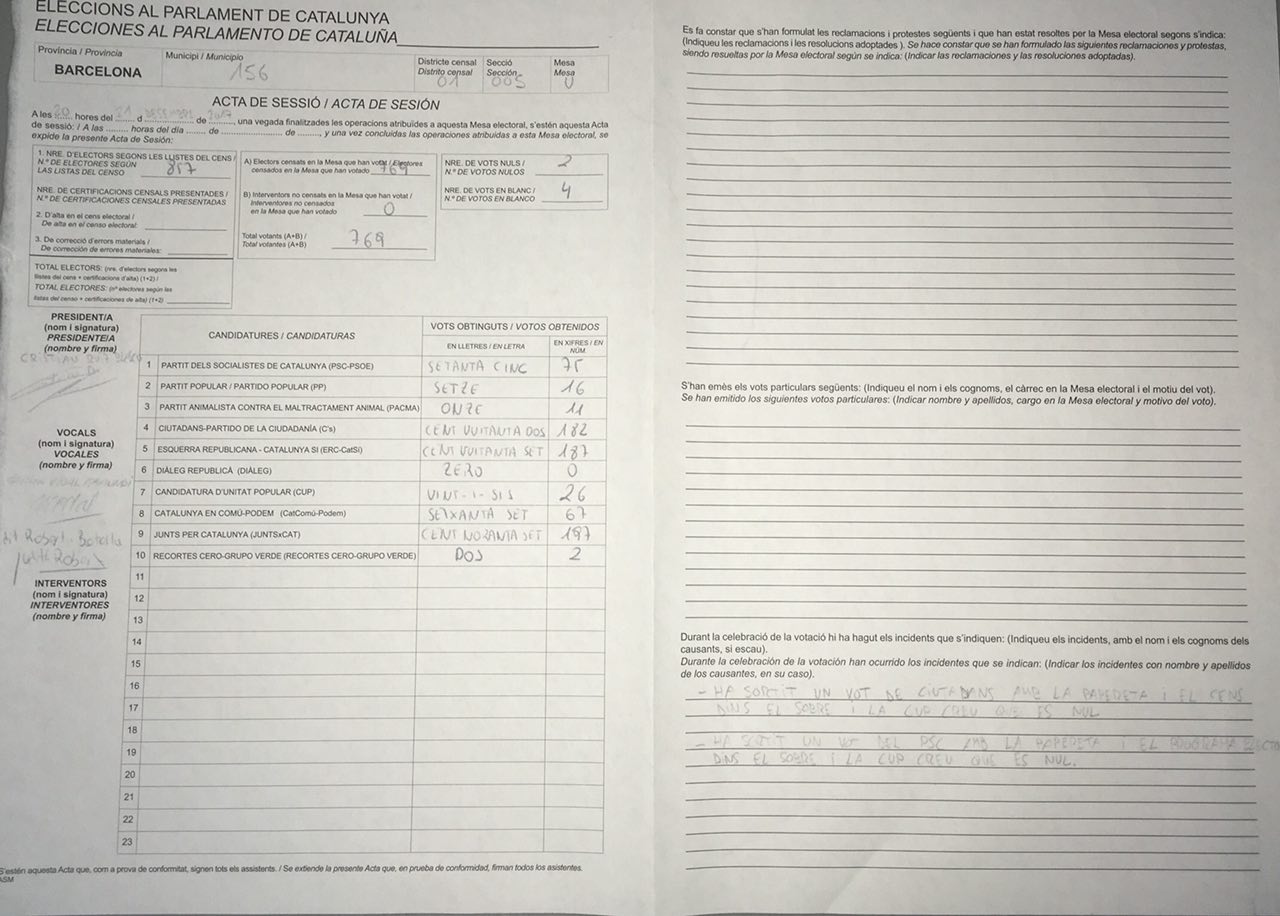 ELECCIONS AL PARLAMENT DE CATALUNYA
ELECCIONES AL PARLAMENTO DE CATALUÑA
Província / Provincia
BARCELONA
Municipi / Municipio
156
Districte censal
Distrito censal
01
Secció
Sección
005
Mesa
Mesa
U
ACTA DE SESSIÓ / ACTA DE SESIÓN
A les 20 hores del 21 d desembre de 2017, una vegada finalitzades les operacions atribuïdes a aquesta Mesa electoral, s'estén aquesta Acta
de sessió: / A las ......... horas del día ....... de .......................... de ........, y una vez concluidas las operaciones atribuidas a esta Mesa electoral, se
expide la presente Acta de Sesión:
1. NRE. D'ELECTORS SEGONS LES LLISTES DEL CENS /
N.º DE ELECTORES SEGÚN
LAS LISTAS DEL CENSO 857
NRE. DE CERTIFICACIONS CENSALS PRESENTADES /
N.º DE CERTIFICACIONES CENSALES PRESENTADAS
2. D'alta en el cens electoral /
De alta en el censo electoral:
3. De correcció d'errors materials /
De corrección de errores materiales:
TOTAL ELECTORS: (nre. d'electors segons les
llistes del cens + certificacions d'alta) (1+2) /
TOTAL ELECTORES: (nº electores según las
listas del censo + certificaciones de alta) (1+2)
A) Electors censats en la Mesa que han votat / Electores
censados en la Mesa que han votado 769
B) Interventors no censats en la Mesa que han votat /
Interventores no censados
en la Mesa que han votado 0
Total votants (A+B) /
Total votantes (A+B) 769
NRE. DE VOTS NULS /
N.º DE VOTOS NULOS 2
NRE. DE VOTS EN BLANC /
N.º DE VOTOS EN BLANCO 4
PRESIDENT/A
(nom i signatura)
PRESIDENTE/A
(nombre y firma)
VOCALS
(nom i signatura)
VOCALES
(nombre y firma)
INTERVENTORS
(nom i signatura)
INTERVENTORES
(nombre y firma)
CANDIDATURES / CANDIDATURAS
VOTS OBTINGUTS / VOTOS OBTENIDOS
EN LLETRES / EN LETRA
EN XIFRES / EN NÚM.
1 PARTIT DELS SOCIALISTES DE CATALUNYA (PSC-PSOE) SETANTA CINC 75
2 PARTIT POPULAR / PARTIDO POPULAR (PP) SETZE 16
3 PARTIT ANIMALISTA CONTRA EL MALTRACTAMENT ANIMAL (PACMA) ONZE 11
4 CIUTADANS-PARTIDO DE LA CIUDADANÍA (C's) CENT VUITANTA DOS 182
5 ESQUERRA REPUBLICANA - CATALUNYA SI (ERC-CatSí) CENT VUITANTA SET 187
6 DIÀLEG REPUBLICÀ (DIÀLEG) ZERO 0
7 CANDIDATURA D'UNITAT POPULAR (CUP) VINT-I-SIS 26
8 CATALUNYA EN COMÚ-PODEM (CatComú-Podem) SEIXANTA SET 67
9 JUNTS PER CATALUNYA (JUNTSxCAT) CENT NORANTA SET 197
10 RECORTES CERO-GRUPO VERDE (RECORTES CERO-GRUPO VERDE) DOS 2
11
12
13
14
15
16
17
18
19
20
21
22
23
S'estén aquesta Acta que, com a prova de conformitat, signen tots els assistents. / Se extiende la presente Acta que, en prueba de conformidad, firman todos los asistentes.
Es fa constar que s'han formulat les reclamacions i protestes següents i que han estat resoltes per la Mesa electoral segons s'indica:
(Indiqueu les reclamacions i les resolucions adoptades ). Se hace constar que se han formulado las siguientes reclamaciones y protestas,
siendo resueltas por la Mesa electoral según se indica: (Indicar las reclamaciones y las resoluciones adoptadas).
S'han emès els vots particulars següents: (Indiqueu el nom i els cognoms, el càrrec en la Mesa electoral i el motiu del vot).
Se han emitido los siguientes votos particulares: (Indicar nombre y apellidos, cargo en la Mesa electoral y motivo del voto).
Durant la celebració de la votació hi ha hagut els incidents que s'indiquen: (Indiqueu els incidents, amb el nom i els cognoms dels
causants, si escau).
Durante la celebración de la votación han ocurrido los incidentes que se indican: (Indicar los incidentes con nombre y apellidos
de los causantes, en su caso).
- HA SORTIT UN VOT DE CIUTADANS AMB LA PAPERETA I EL CENS
DINS EL SOBRE I LA CUP CREU QUE ES NUL
- HA SORTIT UN VOT DEL PSC AMB LA PAPERETA I EL PROGRAMA ELECTO
DINS EL SOBRE I LA CUP CREU QUE ES NUL.